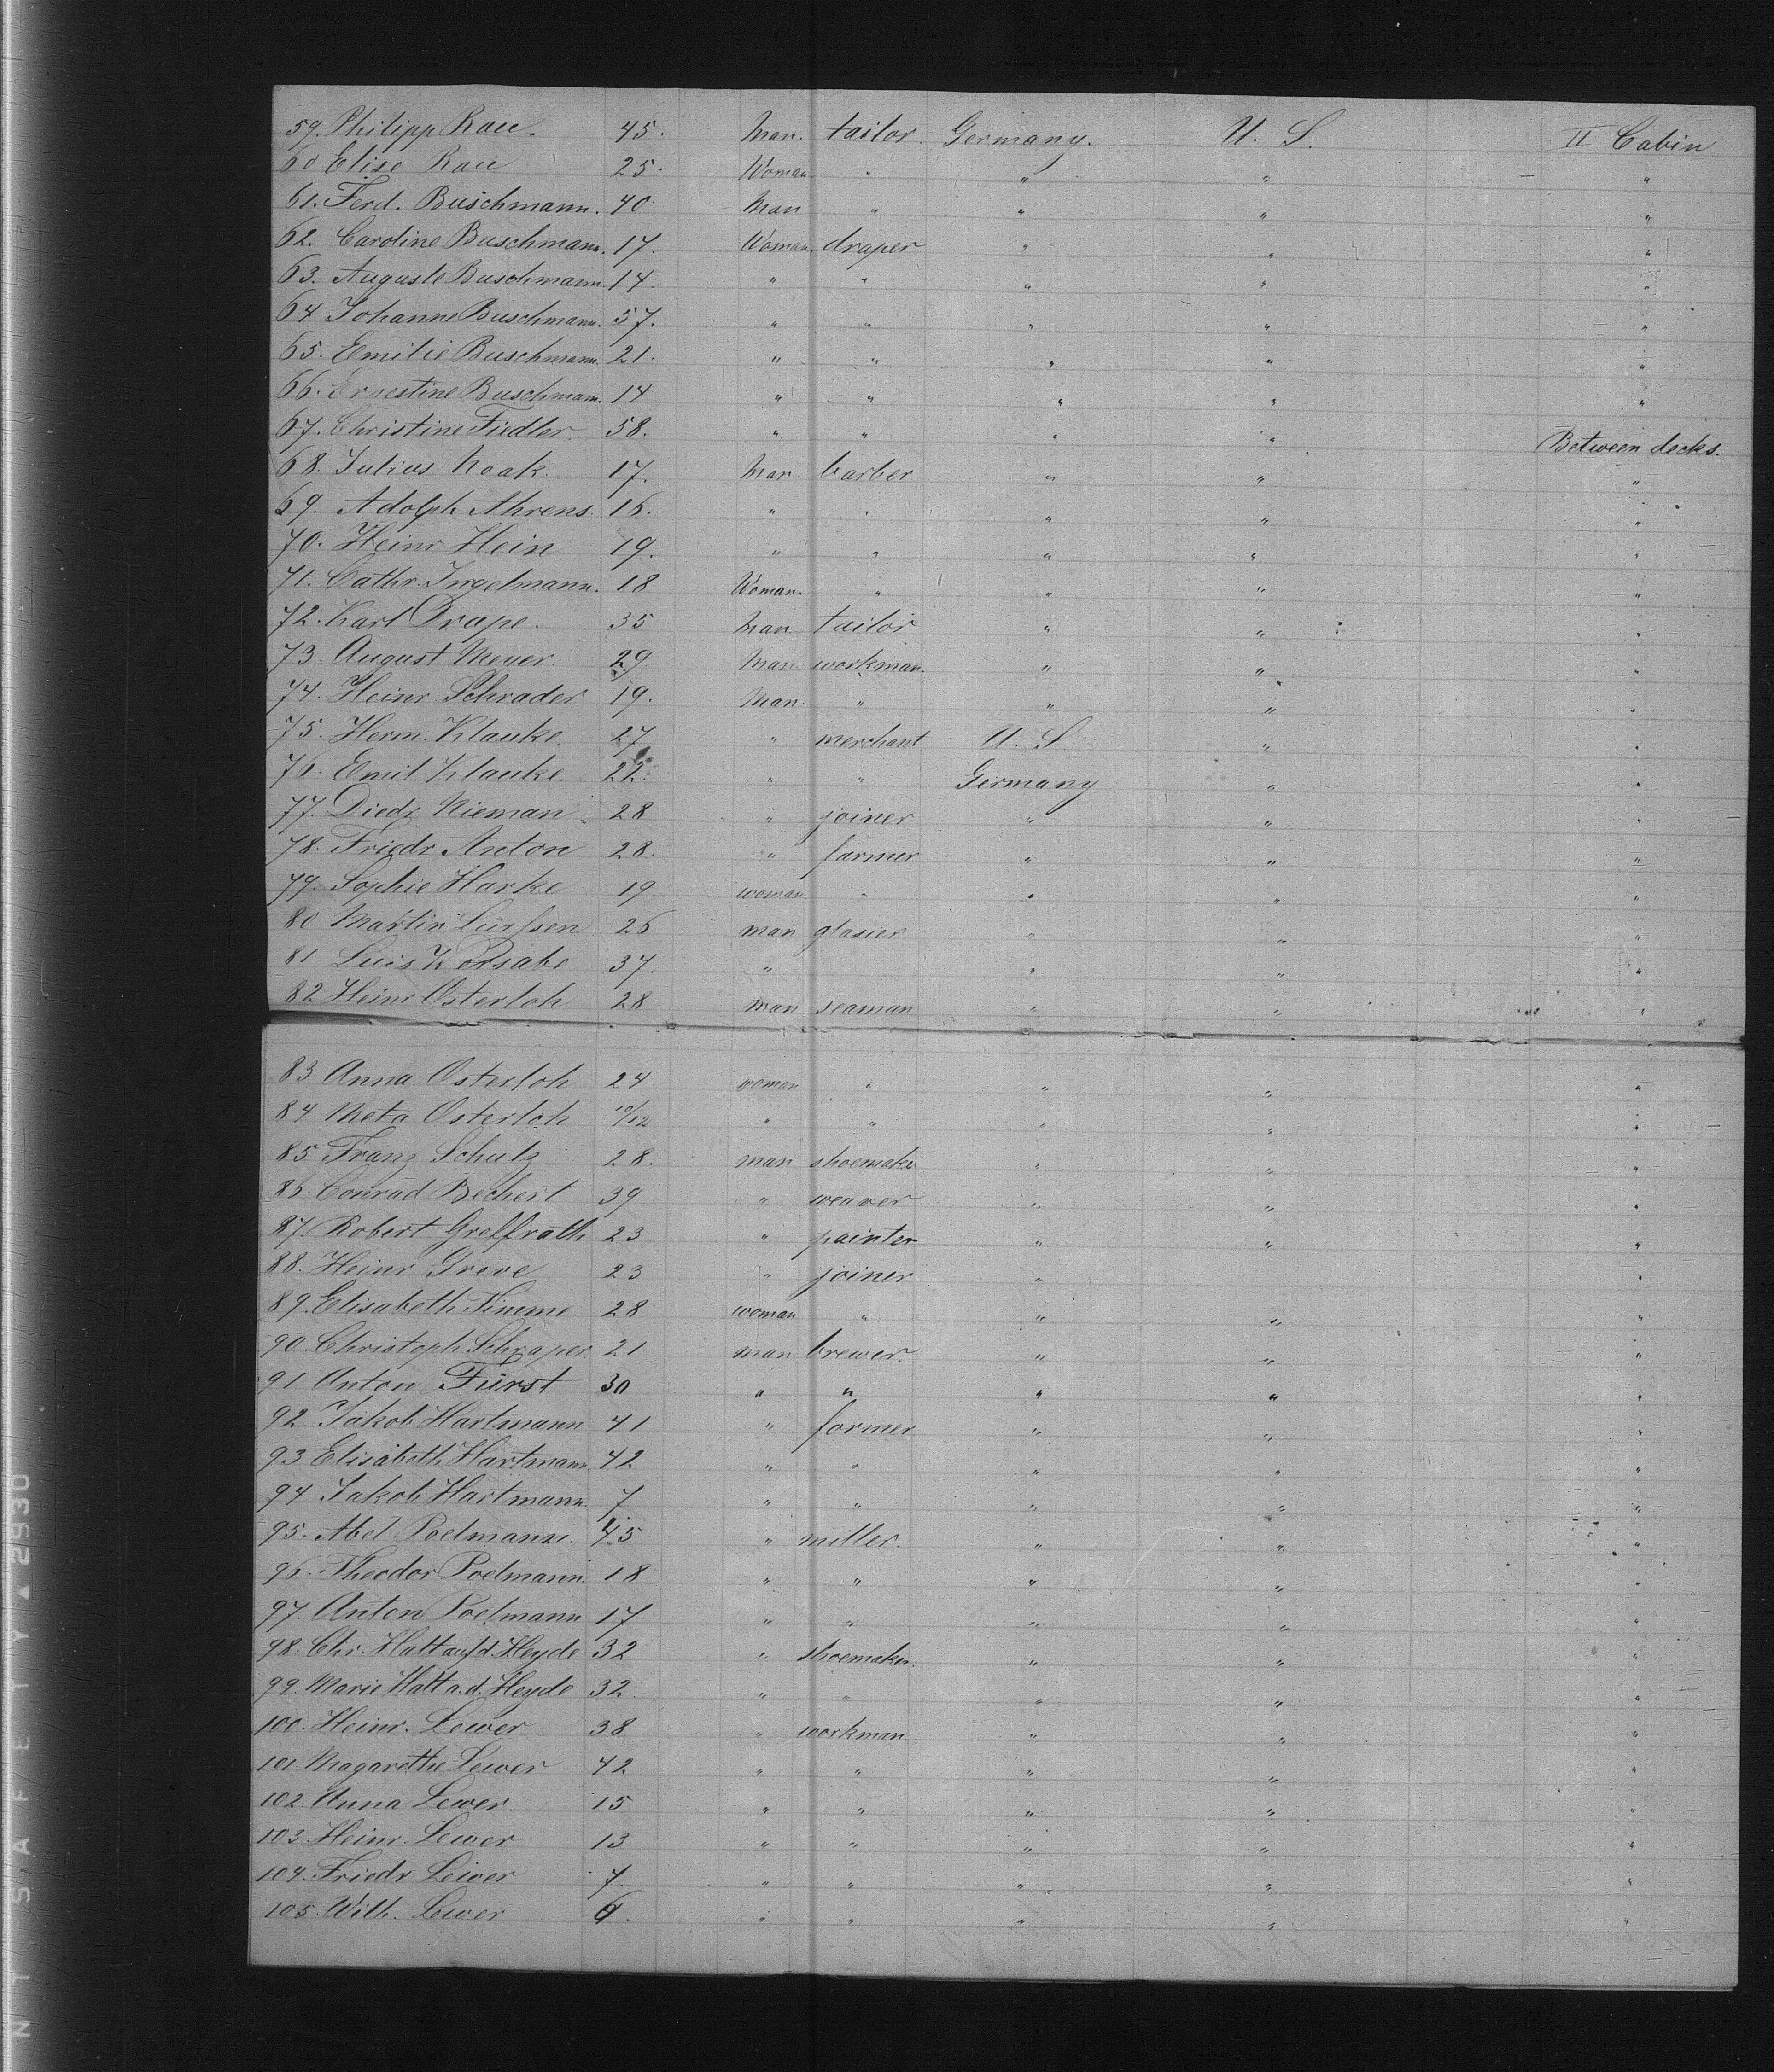 59. Philipp Rau. 45. Man. tailor. Germany. U. S. II Cabin
60 Elise Rau 25. Woman. " " " "
61. Ferd. Buschmann. 40 Man " " " "
62. Caroline Buschmann. 17. Woman. draper " " "
63. Auguste Buschmann. 14. " " " " "
64 Johanne Buschmann. 57. " " " " "
65. Emilie Buschmann. 21. " " " " "
66. Ernestine Buschmann. 14 " " " " "
67. Christine Fiedler. 58. " " " " Between decks.
68. Julius Noak. 17. Man. barber " " "
69. Adolph Ahrens. 16. " " " " "
70. Heinr Hein 19. " " " " "
71. Cathr. Ingelmann. 18 Woman. " " " "
72. Karl Drape. 35 Man tailor " " "
73. August Meyer. 29 Man workman. " " "
74. Heinr Schrader 19. Man. " " " "
75. Herm. Klauke 27 " merchant U. S " "
76. Emil Klauke. 22. " " Germany " "
77. Diedr Nieman 28 " joiner " " "
78. Friedr Anton 28. " farmer " " "
79. Sophie Harke 19 woman " " " "
80 Martin Lürssen 26 man glasier " " "
81 Luis 37. " " " "
82 Heinr Osterloh 28 man seaman " " "
83 Anna Osterloh 24 woman " " " "
84 Meta Osterloh 10/12 " " " " "
85 Franz Schulz 28. man shoemaker " " "
86. Conrad Bechert 39 " weaver " " "
87. Robert Greffrath 23 " painter " " "
88. Heinr Greve 23 " joiner " " "
89. Elisabeth Timme. 28 woman " " " "
90. Christoph Schraper. 21 man brewer. " " "
91 Anton Fürst 30 " " " " "
92. Jakob Hartmann 41 " farmer " " "
93 Elisabeth Hartmann. 42 " " " " "
94 Jakob Hartmann. 7 " " " " "
95. Abel Poelmann. 45 " miller. " " "
96. Theodor Poelmann. 18 " " " " "
97. Anton Poelmann 17 " " " " "
98. Chr. Halt auf d. Heyde 32 " shoemaker. " " "
99. Marie Halt a. d. Heyde 32. " " " " "
100. Heinr. Lewer 38 " workman. " " "
101. Magarethe Lewer 42 " " " " "
102. Anna Lewer. 15 " " " " "
103. Heinr. Lewer 13 " " " " "
104. Friedr Lewer 7. " " " " "
105. Wilh. Lewer 6. " " " " "
N T S A F E T Y ▲ 2930